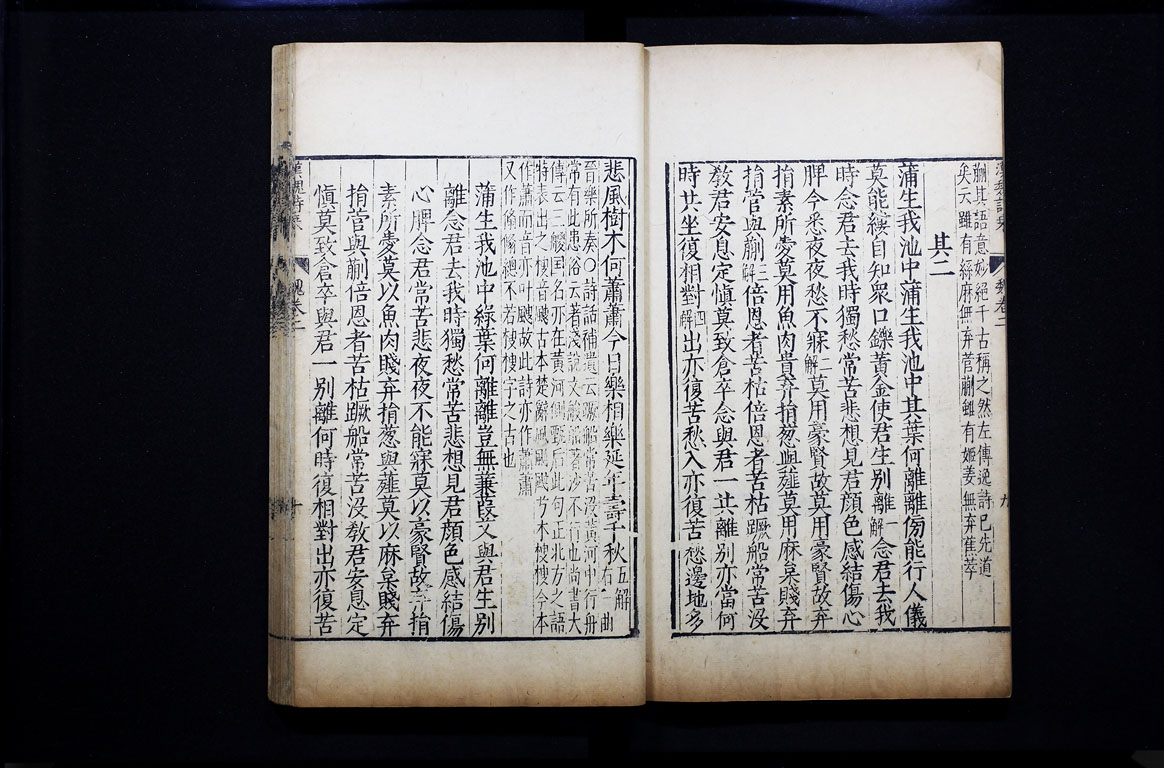 刪其語意妙絕千古稱之然左傳逸詩已先道
矣云雖有絲麻無弃菅蒯雖有姬姜無弃蕉萃
其二
蒲生我池中蒲生我池中其葉何離離傍能行人儀
莫能縷自知衆口鑠黃金使君生別離一解念君去我
時念君去我時獨愁常苦悲想見君顔色感結傷心
脾今悉夜夜愁不寐二解莫用豪賢故莫用豪賢故弃
捐素所愛莫用魚肉貴弃捐葱與薤莫用麻枲賤弃
捐菅與蒯三解倍恩者苦枯倍恩者苦枯蹶船常苦没
敎君安息定慎莫致倉卒念與君一共離别亦當何
時共坐復相對四解出亦復苦愁入亦復苦愁邊地多
悲風樹木何蕭蕭今日樂相樂延年壽千秋五解右一曲
晉樂所奏○詩話補遺云蹶船常苦没黃河中行舟
常有此患俗云著淺說文艐船著沙不行也尚書大
傳云三艐国名亦在黃河側甄后此句正北方之語
特表出之樓音颼古本楚辭風颼颼兮木樓樓今本
作蕭而音亦叶颼故此詩亦作蕭蕭
又作翛翛總不若樓樓字之古也
蒲生我池中綠葉何離離豈無蒹葭艾與君生别
離念君去我時獨愁常苦悲想見君顔色感結傷
心脾念君常苦悲夜夜不能寐莫以豪賢故弃捐
素所愛莫以魚肉賤弃捐葱與薤莫以麻枲賤弃
捐菅與蒯倍恩者苦枯蹶船常苦没敎君安息定
慎莫致倉卒與君一别離何時復相對出亦復苦